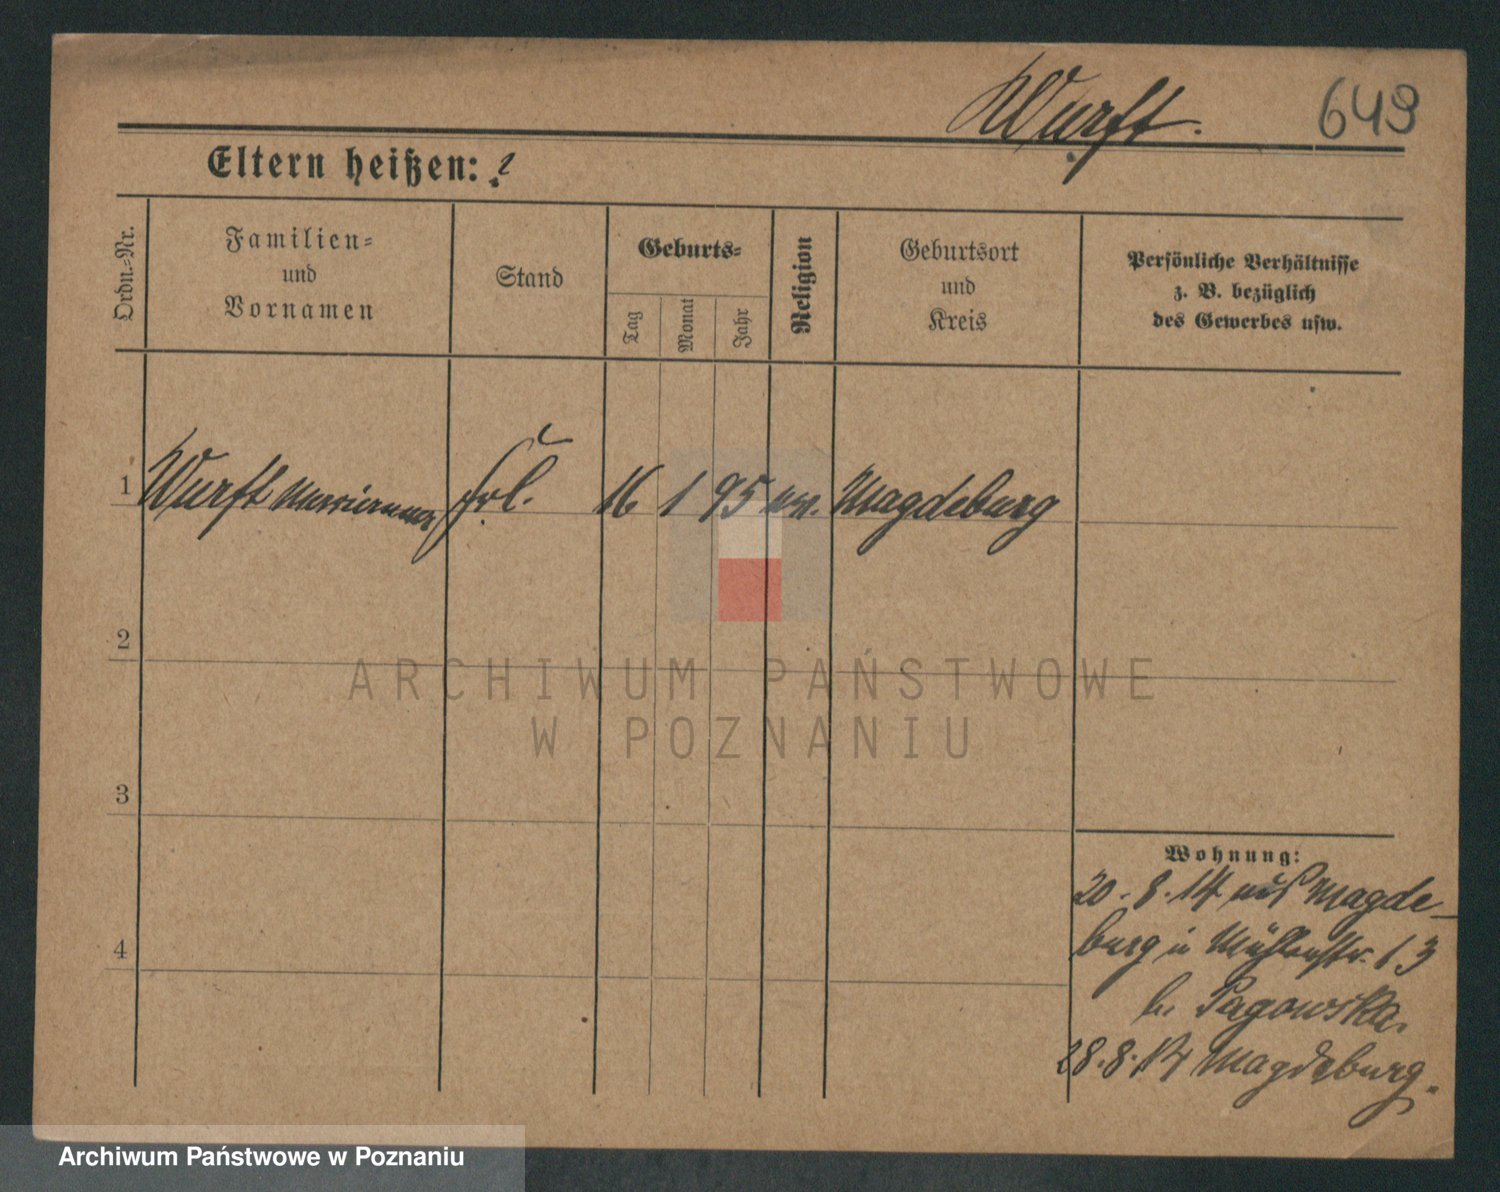 Wurft.
649
Eltern heißen: ?
Ordn.-Nr.
Familien-
und
Vornamen
Stand
Geburts-
Tag
Monat
Jahr
Religion
Geburtsort
und
Kreis
Persönliche Verhältnisse
z. B. bezüglich
des Gewerbes usw.
1 Wurft Marianna Frl. 16 1 95 Magdeburg
2
3
4
Wohnung:
20.8.14 aus Magde-
burg n Mühlenstr. 13
b. Pagowska.
28.8.14 Magdeburg.
ARCHIWUM PAŃSTWOWE
W POZNANIU
Archiwum Państwowe w Poznaniu